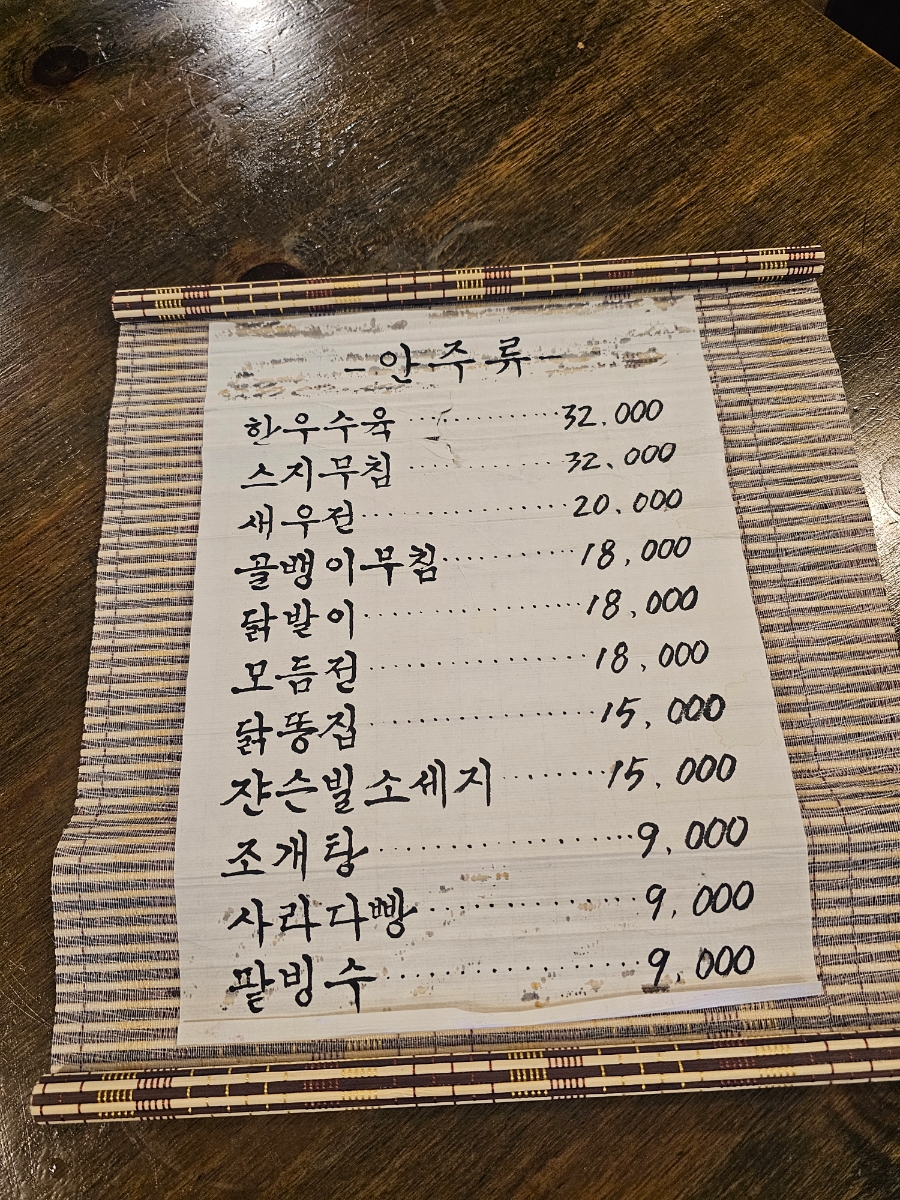 -안주류-
한우수육 ·············· 32.000
스지무침 ·············· 32.000
새우전 ·················· 20.000
골뱅이무침 ············ 18,000
닭발이 ·················· 18,000
모듬전 ·················· 18,000
닭똥집 ·················· 15,000
쟌슨빌소세지 ········ 15,000
조개탕 ·················· 9,000
사라다빵 ················ 9,000
팥빙수 ·················· 9,000